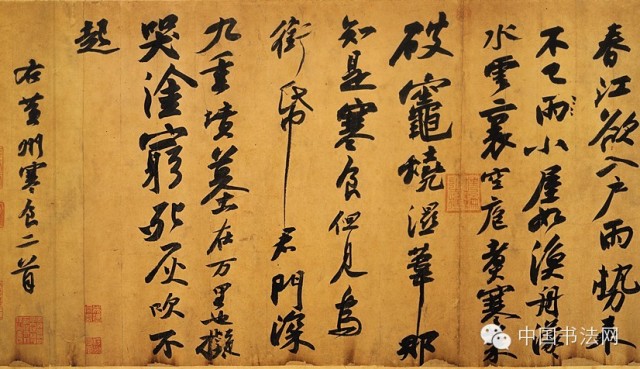 春江欲入户雨勢来
不已雨小屋如漁舟濛
水雲裏空庖煮寒菜
破竈燒濕葦那
知是寒食但見烏
銜帋君門深
九重墳墓在万里也擬
哭塗窮死灰吹不
起
右黄州寒食二首
中国书法网